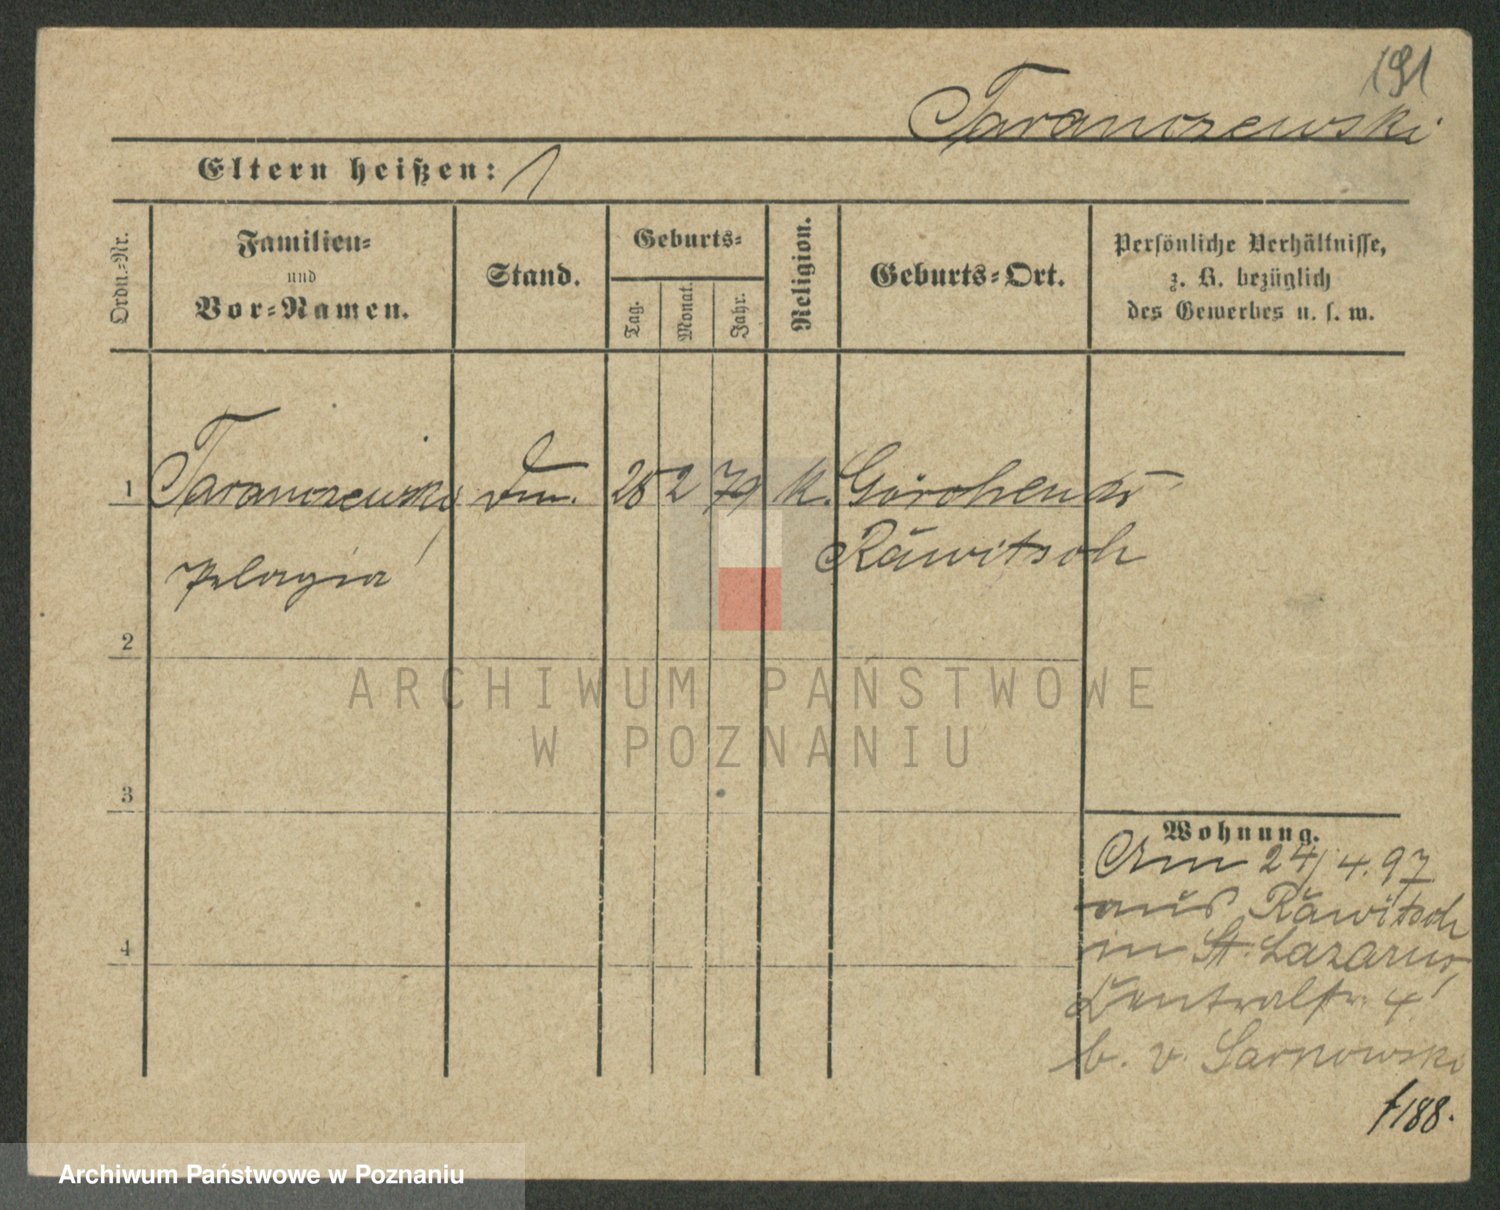 191
Taranczewski
Eltern heißen:
Ordn.-Nr.
Familien-
und
Vor-Namen.
Stand.
Geburts-
Tag.
Monat.
Jahr.
Religion.
Geburts-Ort.
Persönliche Verhältnisse,
z. B. bezüglich
des Gewerbes u. s. w.
1 Taranczewski, 2 79 K. Görchen
Pelagia Rawitsch
2
3
4
Wohnung.
Am 24/4.97
aus Rawitsch
in St. Lazarus,
Centralstr. 4.
b. v. Sarnowski
188.
ARCHIWUM PAŃSTWOWE
W POZNANIU
Archiwum Państwowe w Poznaniu